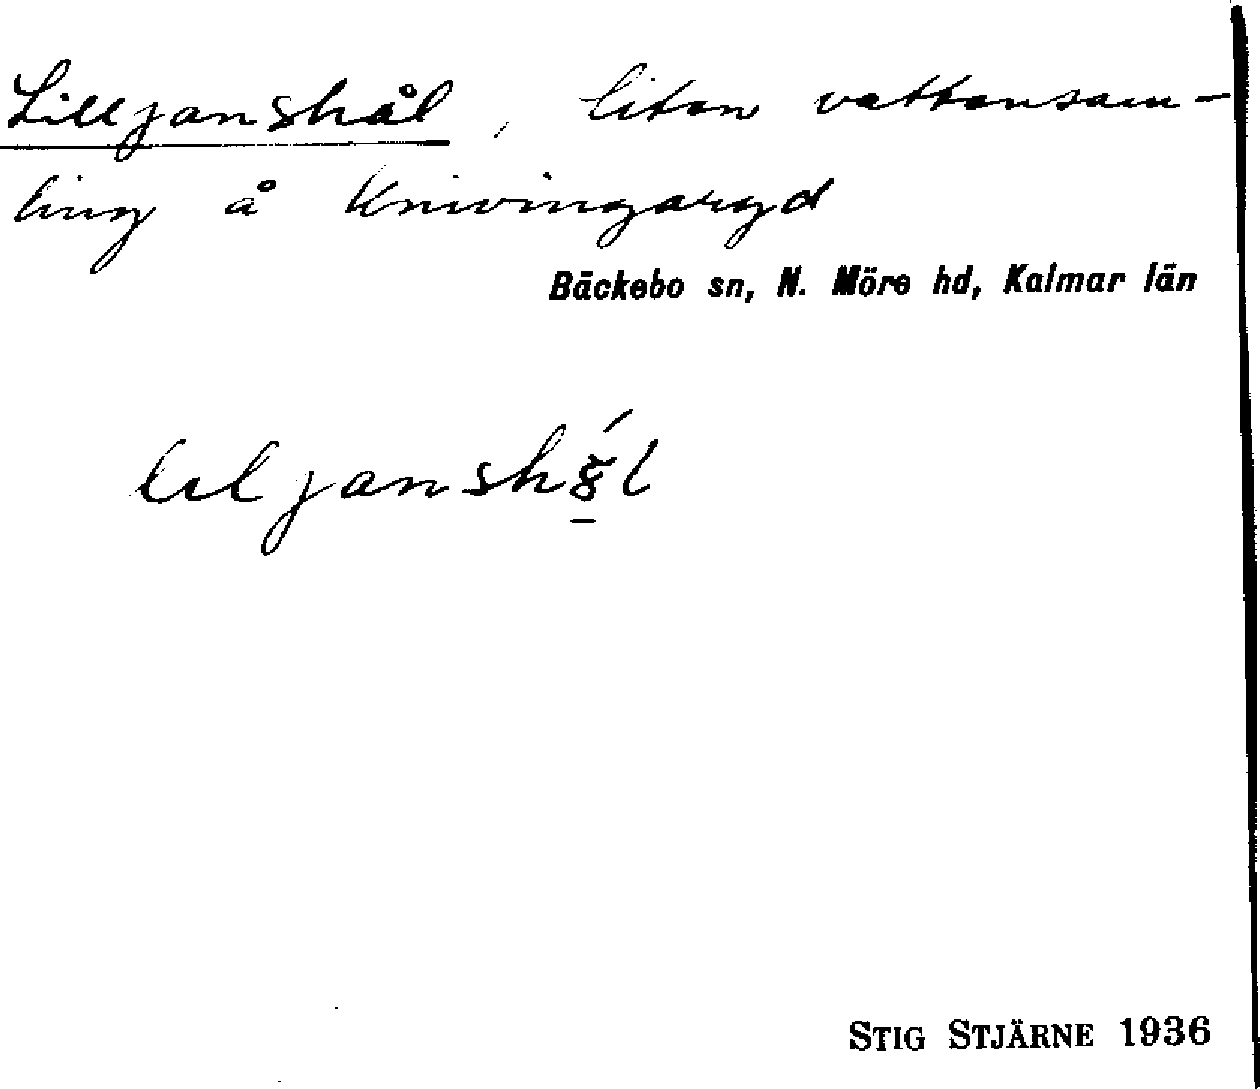 Lilljanshål, liten vattensam-
ling å Knivingaryd
Bäckebo sn, N. Möre hd, Kalmar län
STIG STJÄRNE 1936